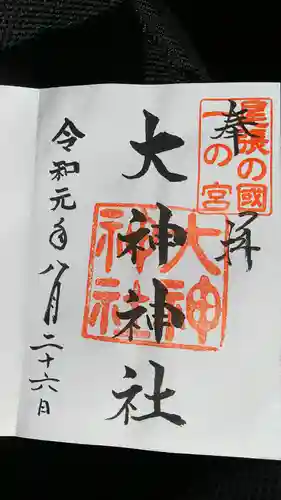 奉拝
尾張の國
一の宮
大神神社
大神
神社
令和元年八月二十六日